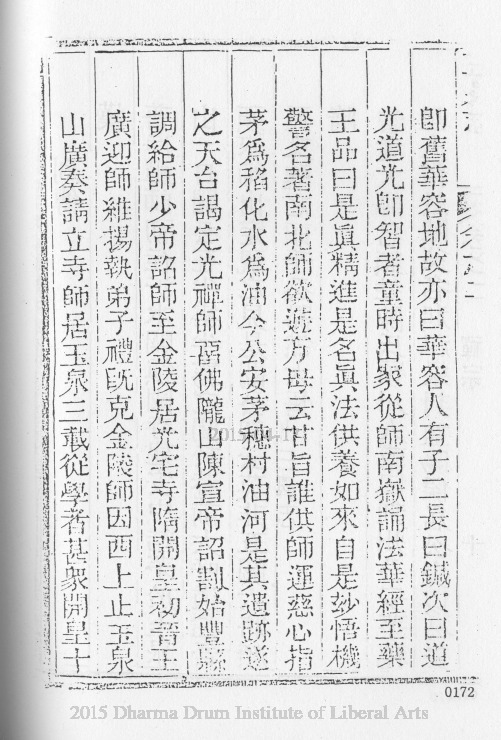 卽舊華容地故亦曰華容人有子二長曰鍼次曰道
光道光卽智者童時出家從師南嶽誦法華經至藥
王品曰是眞精進是名眞法供養如來自是玅悟機
警名著南北師欲遊方母云甘旨誰供師運慈心指
茅爲稻化水爲油今公安茅穗村油河是其遺跡遂
之天台謁定光禪師居佛隴山陳宣帝詔割始豐縣
調給師少帝詔師至金陵居光宅寺隋開皇初晉王
廣迎師維揚執弟子禮旣克金陵師因西上止玉泉
山廣奏請立寺師居玉泉三載從學者甚衆開皇十
0172
2015 Dharma Drum Institute of Liberal Arts